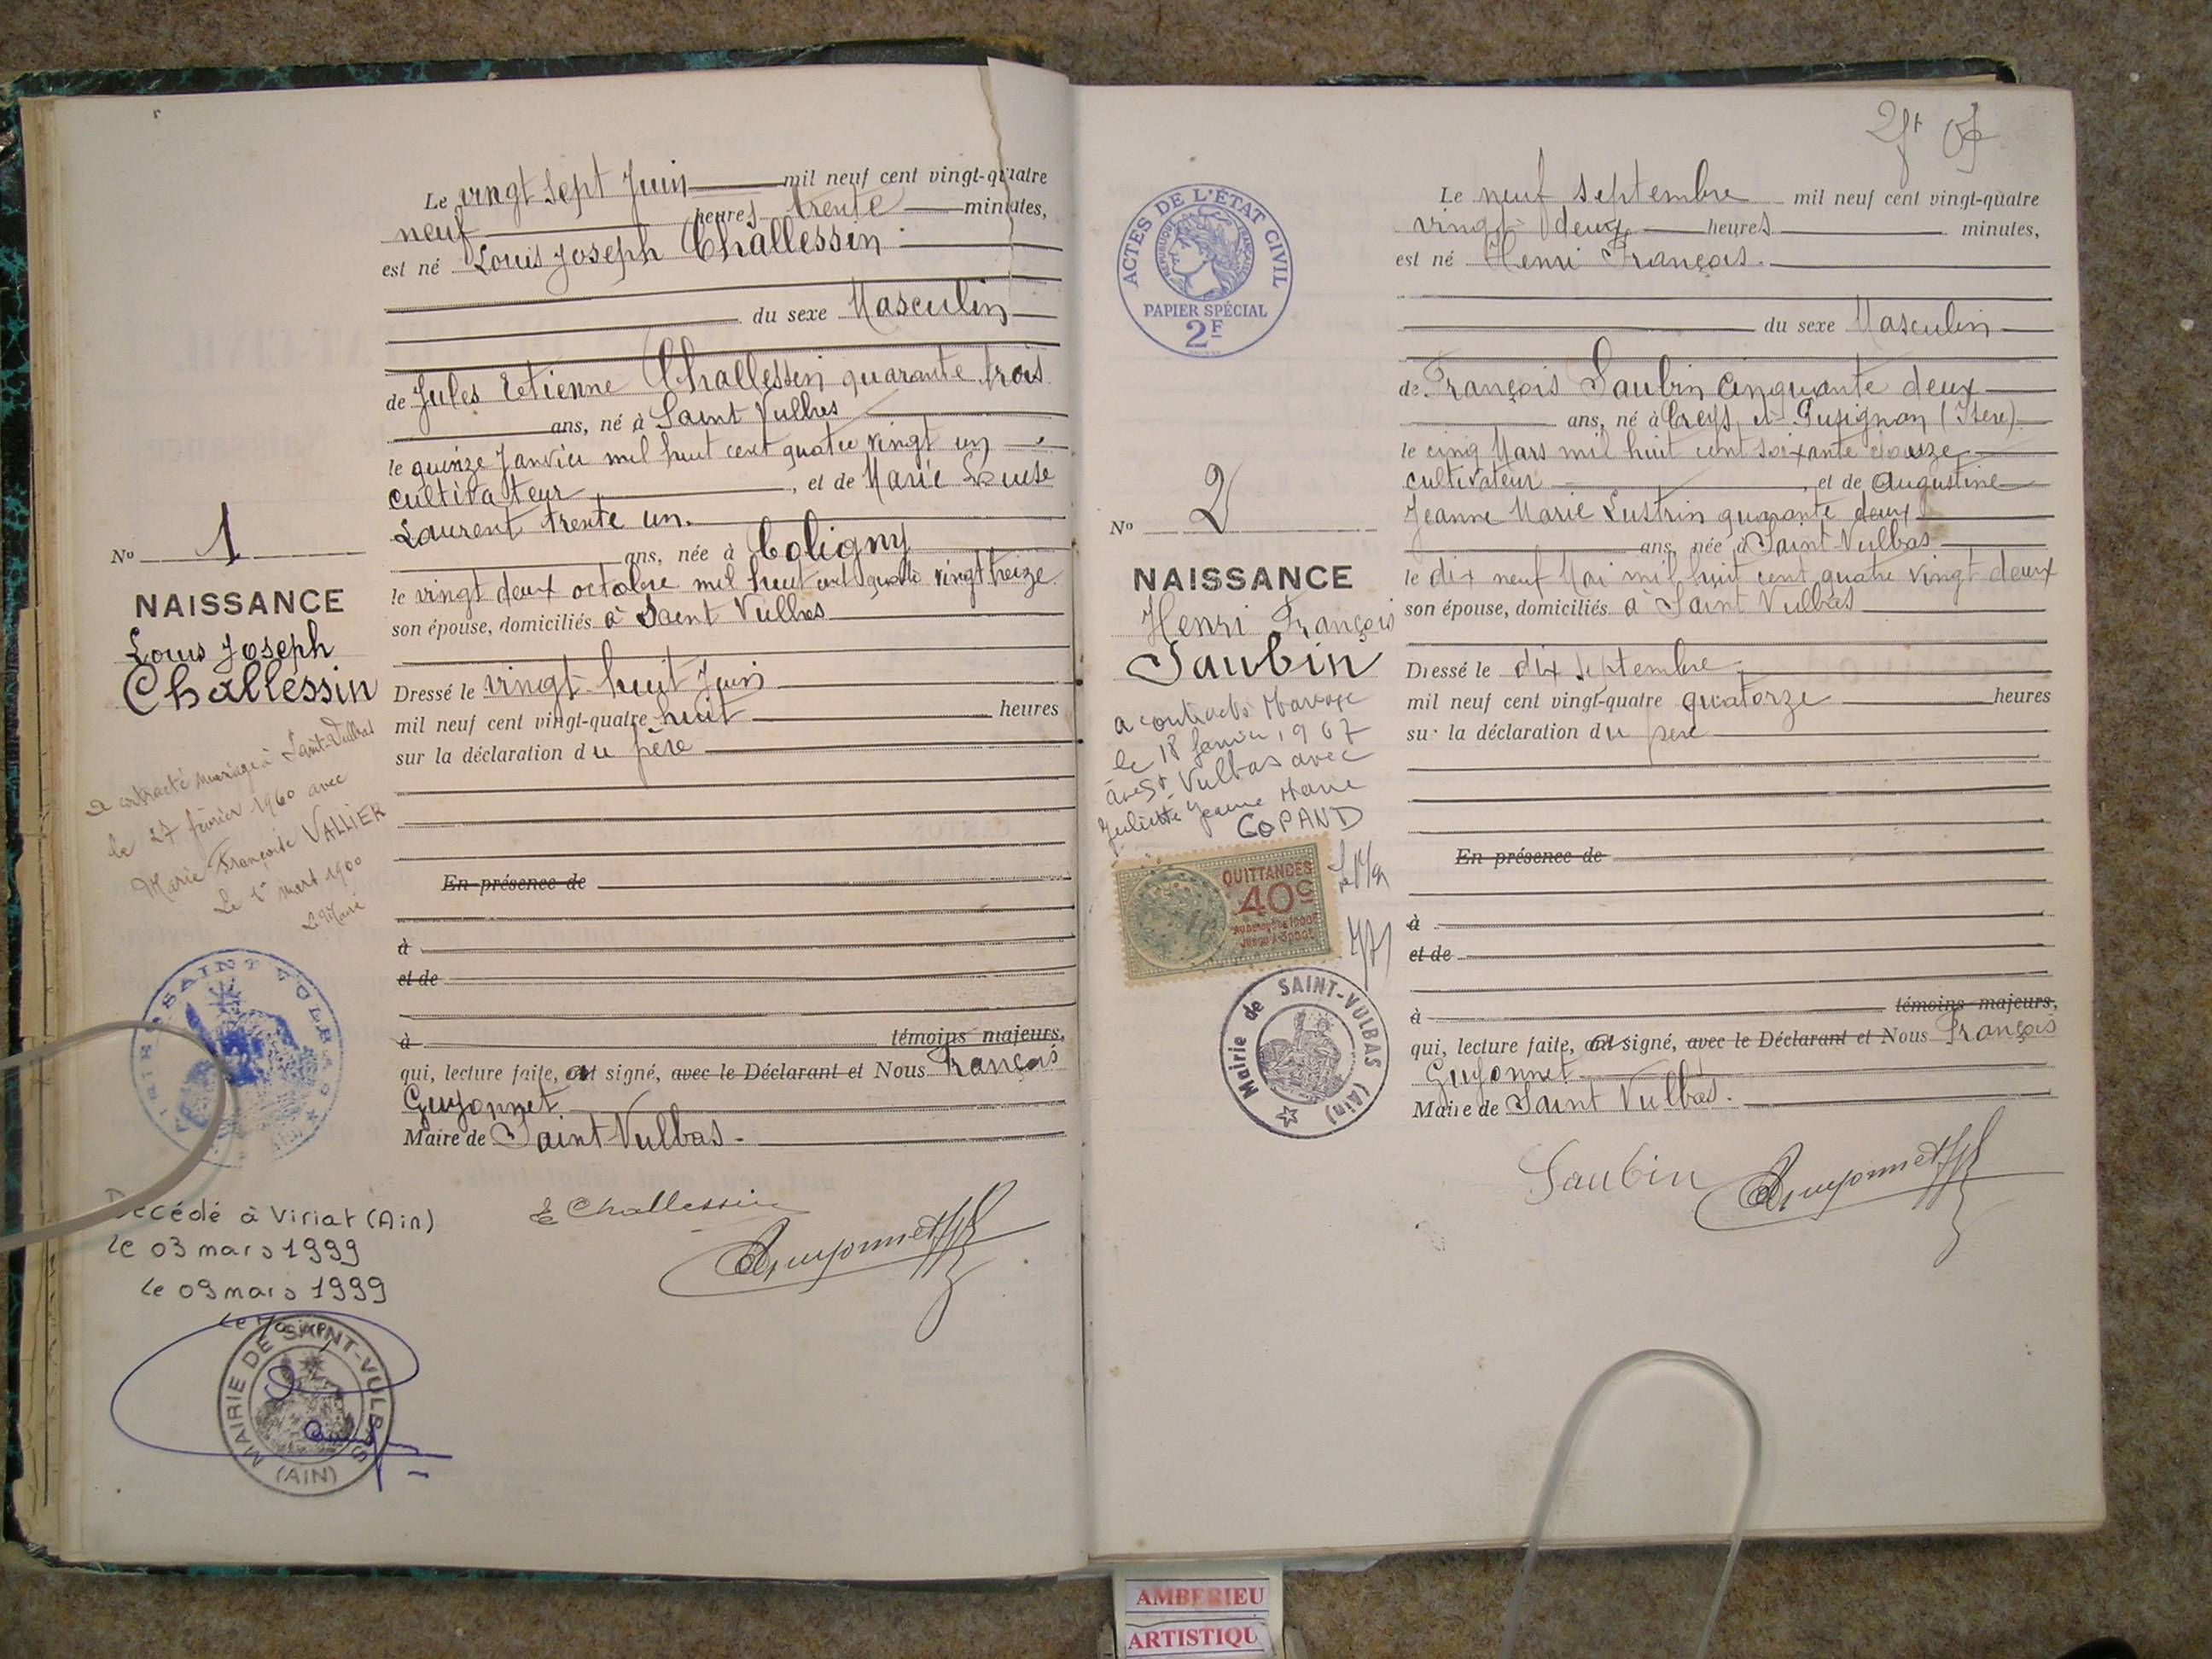 Le vingt sept Juin mil neuf cent vingt-quatre
neuf heures trente minutes,
est né Louis Joseph Challessin
du sexe Masculin
de Jules Etienne Challessin quarante trois
ans, né à Saint Vulbas
le quinze Janvier mil huit cent quatre vingt un
cultivateur, et de Marie Louise
Laurent trente un.
ans, née à Coligny
le vingt deux octobre mil huit cent quatre vingt treize
son épouse, domiciliés à Saint Vulbas
Dressé le vingt huit Juin
mil neuf cent vingt-quatre huit heures
sur la déclaration du père
En présence de
à
et de
à témoins majeurs,
qui, lecture faite, ont signé, avec le Déclarant et Nous François
Guyonnet
Maire de Saint-Vulbas.
E Challessin
Guyonnet
No 1
NAISSANCE
Louis Joseph
Challessin
a contracté mariage à Saint-Vulbas
le 27 février 1960 avec
Marie Françoise VALLIER
Le 1er mars 1960
Le Maire
Décédé à Viriat (Ain)
le 03 mars 1999
le 09 mars 1999
Le Maire
MAIRIE DE SAINT-VULBAS
(AIN)
ACTES DE L'ÉTAT CIVIL
RÉPUBLIQUE FRANÇAISE
PAPIER SPÉCIAL
2F
Le neuf septembre mil neuf cent vingt-quatre
vingt deux heures minutes,
est né Henri François.
du sexe Masculin
de François Saubin cinquante deux
ans, né à Creys et Pusignan (Isère)
le cinq Mars mil huit cent soixante douze
cultivateur, et de Augustine
Jeanne Marie Lustrin quarante deux
ans, née à Saint Vulbas
le dix neuf Mai mil huit cent quatre vingt deux
son épouse, domiciliés à Saint Vulbas
Dressé le dix septembre
mil neuf cent vingt-quatre quatorze heures
sur la déclaration du père
En présence de
à
et de
à témoins majeurs,
qui, lecture faite, ont signé, avec le Déclarant et Nous François
Guyonnet
Maire de Saint Vulbas.
Saubin Guyonnet
No 2
NAISSANCE
Henri François
Saubin
a contracté Mariage
le 18 Janvier 1967
à St Vulbas avec
Juliette Jeanne Marie
COPAND
QUITTANCES
40c
Mairie de SAINT-VULBAS (Ain)
AMBERIEU
ARTISTIQU